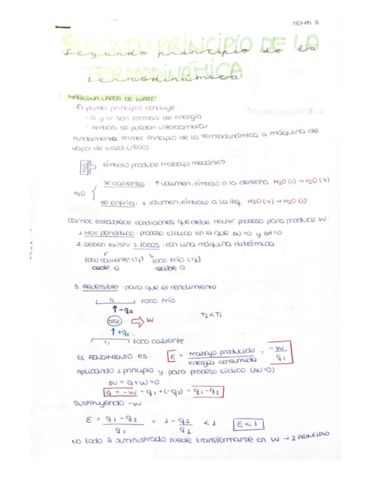 TEMA 3
SEGUNDO PRINCIPIO DE LA
segundo principio de la
TERMODINÁMICA
termodinámica
1. MÁQUINA VAPOR DE WATT
El primer principio concluye:
- Q y W son formas de energía
- Ambos se pueden intercambiar
Fundamento Primer Principio de la Termodinámica a máquina de
vapor de Watt (1800)
émbolo produce trabajo mecánico
H2O
se calienta: ↑ volumen, émbolo a la derecha H2O (l) → H2O (v)
se enfría: ↓ volumen, émbolo a la izq. H2O (v) → H2O (l)
Carnot establece condiciones que debe reunir proceso para producir W:
1. Muy periódico: proceso cíclico en el que ΔU = 0 y ΔH = 0
2. Deben existir 2 focos: con una máquina diatérmica
foco caliente (T1) foco frío (T2)
cede Q recibe Q
3. Reversible: para que es rendimiento
T2 foco frío
↑ -q2
⇨ W T2 < T1
↑ +q1
T1 foco caliente
EL RENDIMIENTO ES: E = trabajo producido / energía consumida = -W / q1
Aplicando 1 principio y para proceso cíclico (ΔU = 0)
ΔU = Q + W = 0
Q = -W = q1 + (-q2) = q1 - q2
Sustituyendo -W
E = q1 - q2 / q1 = 1 - q2 / q1 < 1 E < 1
No todo Q suministrado puede transformarse en W → 2 PRINCIPIO